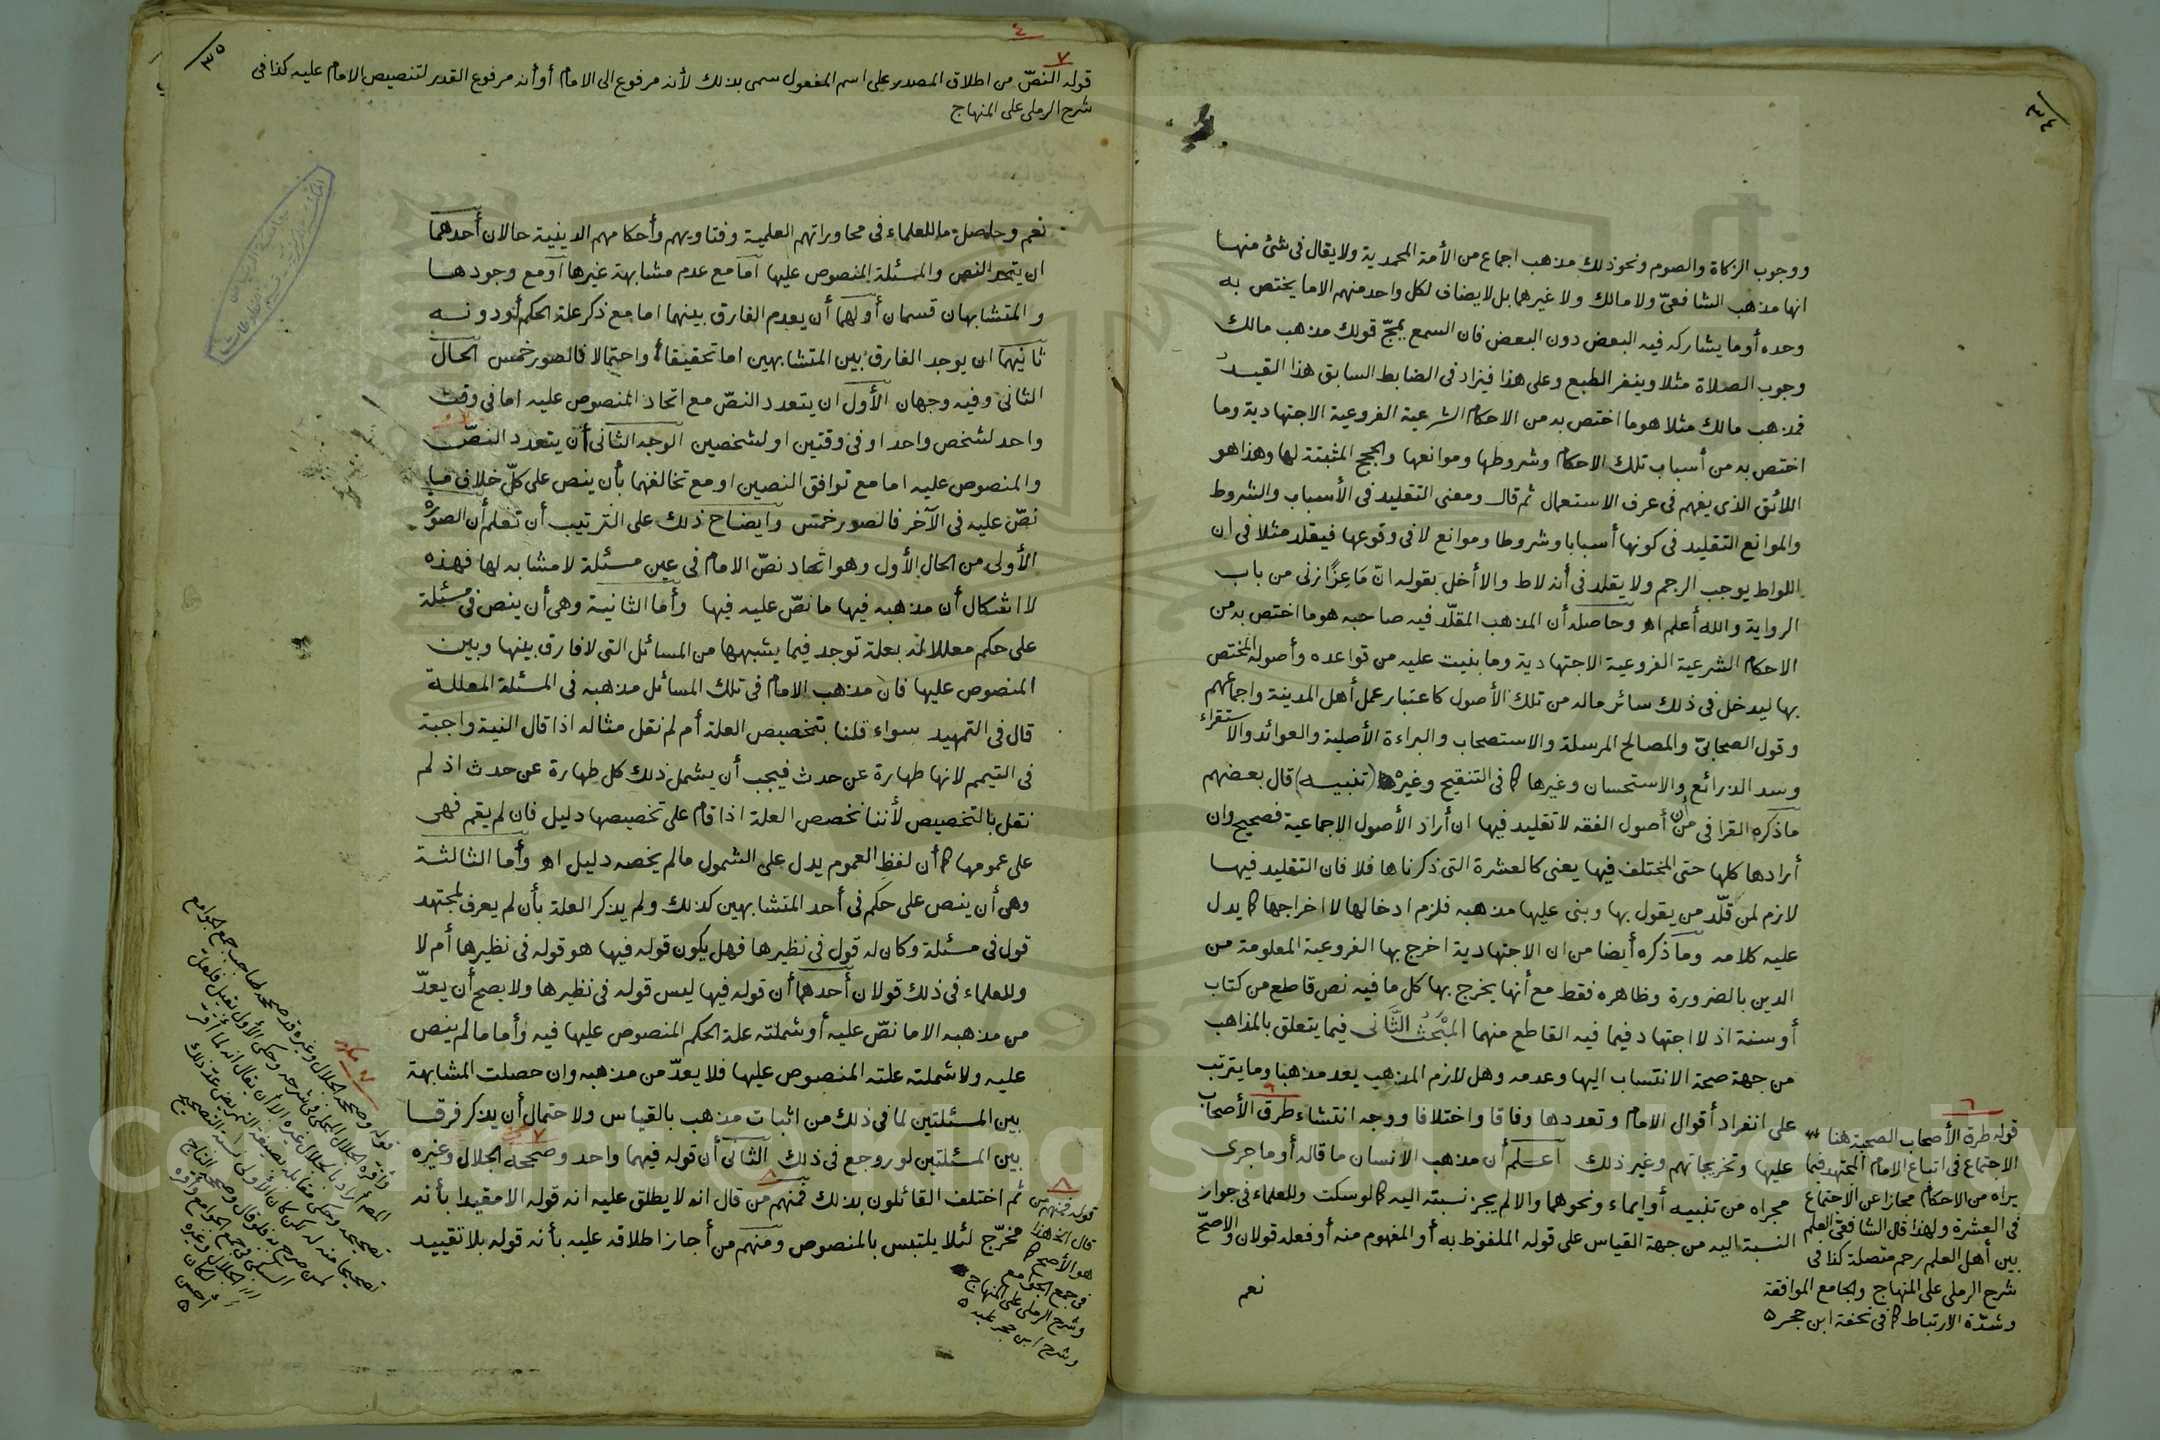 ٣٤
ووجوب الزكاة والصوم ونحو ذلك مذهب اجماع من الأمة المحمدية ولا يقال فى شئ منها
انها مذهب الشافعىّ ولا مالك ولا غيرهما بل لا يضاف لكل واحد منهم الا ما يختص به
وحده أو ما يشاركه فيه البعض دون البعض فان السمع يمجّ قولك مذهب مالك
وجوب الصلاة مثلا وينفر الطبع وعلى هذا فيزاد فى الضابط السابق هذا القيد
فمذهب مالك مثلا هو ما اختص به من الاحكام الشرعية الفروعية الاجتهادية وما
اختص به من أسباب تلك الاحكام وشروطها وموانعها والحجج المثبتة لها وهذا هو
اللائق الذى يفهم فى عرف الاستعمال ثم قال ومعنى التقليد فى الأسباب والشروط
والموانع التقليد فى كونها أسبابا وشروطا وموانع لا فى وقوعها فيقلد مثلا فى ان
اللواط يوجب الرجم ولا يقلد فى أنه لاط والا أخل بقوله انّ مَاعِزًا زنى من باب
الرواية والله أعلم اه وحاصله أن المذهب المقلّد فيه صاحبه هو ما اختص به من
الاحكام الشرعية الفروعية الاجتهادية وما بنيت عليه من قواعده وأصوله المختص
بها ليدخل فى ذلك سائر ماله من تلك الأصول كاعتبار عمل أهل المدينة واجماعهم
وقول الصحابىّ والمصالح المرسلة والاستصحاب والبراءة الأصلية والعوائد والاستقراء
وسد الذرائع والاستحسان وغيرها كما فى التنقيح وغيره (تنبيه) قال بعضهم
ما ذكره القرافى من أن أصول الفقه لا تقليد فيها ان أراد الأصول الاجماعية فصحيح وان
أرادها كلها حتى المختلف فيها يعنى كالعشرة التى ذكرناها فلا فان التقليد فيها
لازم لمن قلّد من يقول بها وبنى عليها مذهبه فلزم ادخالها لا اخراجها كما يدل
عليه كلامه وما ذكره أيضا من ان الاجتهادية اخرج بها الفروعية المعلومة من
الدين بالضرورة وظاهره فقط مع أنها يخرج بها كل ما فيه نص قاطع من كتاب
أو سنة اذ لا اجتهاد فيما فيه القاطع منهما المَبْحَثُ الثَّانى فيما يتعلق بالمذاهب
من جهة صحة الانتساب اليها وعدمه وهل لازم المذهب يعد مذهبا وما يترتب
على انفراد أقوال الامام وتعددها وفاقا واختلافا ووجه انتشاء طرق الأصحاب
عليها وتخريجاتهم وغير ذلك اعلم أن مذهب الانسان ما قاله أو ما جرى
مجراه من تنبيه أو ايماء ونحوهما والا لم يجز نسبته اليه كما لو سكت وللعلماء فى جواز
النسبة اليه من جهة القياس على قوله الملفوظ به أو المفهوم منه أو فعله قولان والاصحّ
نعم
٦
قوله طرق الأصحاب الصحبة هنا
الاجتماع فى اتباع الامام المجتهد فيما
يراه من الاحكام مجازا عن الاجتماع
فى العشرة ولهذا قال الشافعى العلم
بين أهل العلم رحم متصلة كذا فى
شرح الرملى على المنهاج والجامع الموافقة
وشدّة الارتباط كما فى تحفة ابن حجر ٥
٣٥
٧
قوله النصّ من اطلاق المصدر على اسم المفعول سمى بذلك لأنه مرفوع الى الامام أو أنه مرفوع القدر لتنصيص الامام عليه كذا فى
شرح الرملى على المنهاج
نعم وحاصل ما للعلماء فى محاوراتهم العلمية وفتاويهم وأحكامهم الدينية حالان أحدهما
ان يتحد النص والمسئلة المنصوص عليها اما مع عدم مشابهة غيرها أو مع وجودها
والمتشابهان قسمان أولهما أن يعدم الفارق بينهما اما مع ذكر علة الحكم أو دونه
ثانيهما ان يوجد الفارق بين المتشابهين اما تحقيقا أو احتمالا فالصور خمس الحال
الثانى وفيه وجهان الأول ان يتعدد النصّ مع اتحاد المنصوص عليه اما فى وقت
واحد لشخص واحد او فى وقتين او لشخصين الوجه الثانى أن يتعدد النصّ
والمنصوص عليه اما مع توافق النصين او مع تخالفهما بأن ينص على كلّ خلاف ما
نصّ عليه فى الآخر فالصور خمس وايضاح ذلك على الترتيب أن تعلم أن الصورة
الأولى من الحال الأول وهو اتحاد نصّ الامام فى عين مسئلة لا مشابه لها فهذه
لا اشكال أن مذهبه فيها ما نصّ عليه فيها وأما الثانية وهى أن ينص فى مسئلة
على حكم معللا له بعلة توجد فيما يشبهها من المسائل التى لا فارق بينها وبين
المنصوص عليها فان مذهب الامام فى تلك المسائل مذهبه فى المسئلة المعللة
قال فى التمهيد سواء قلنا بتخصيص العلة أم لم نقل مثاله اذا قال النية واجبة
فى التيمم لانها طهارة عن حدث فيجب أن يشمل ذلك كل طهارة عن حدث اذ لم
نقل بالتخصيص لأننا نخصص العلة اذا قام على تخصيصها دليل فان لم يقم فهى
على عمومها كما أن لفظ العموم يدل على الشمول ما لم يخصه دليل اه وأما الثالثة
وهى أن ينص على حكم فى أحد المتشابهين كذلك ولم يذكر العلة بأن لم يعرف لمجتهد
قول فى مسئلة وكان له قول فى نظيرها فهل يكون قوله فيها هو قوله فى نظيرها أم لا
وللعلماء فى ذلك قولان أحدهما أن قوله فيها ليس قوله فى نظيرها ولا يصح أن يعدّ
من مذهبه الا ما نصّ عليه أو شملته علة الحكم المنصوص عليها فيه وأما ما لم ينص
عليه ولا شملته علته المنصوص عليها فلا يعدّ من مذهبه وان حصلت المشابهة
بين المسئلتين لما فى ذلك من اثبات مذهب بالقياس ولاحتمال أن يذكر فرقا
بين المسئلتين لو روجع فى ذلك الثانى أن قوله فيهما واحد وصححه الجلال وغيره
ثم اختلف القائلون بذلك فمنهم من قال انه لا يطلق عليه انه قوله الا مقيدا بأنه
مخرّج لئلا يلتبس بالمنصوص ومنهم من أجاز اطلاقه عليه بأنه قوله بلا تقييد
٨
قوله فمنهم من
قال الخ هذا
هو الأصح كما
فى جمع الجوامع
وشرح الرملى على المنهاج
وشرح ابن حجر عليه ٥
٧ مكرر
قوله وصححه الجلال وغيره قد صححه صاحب جمع الجوامع
وأقره الجلال المحلى فى شرحه وحكى الأول بقيل فلعل